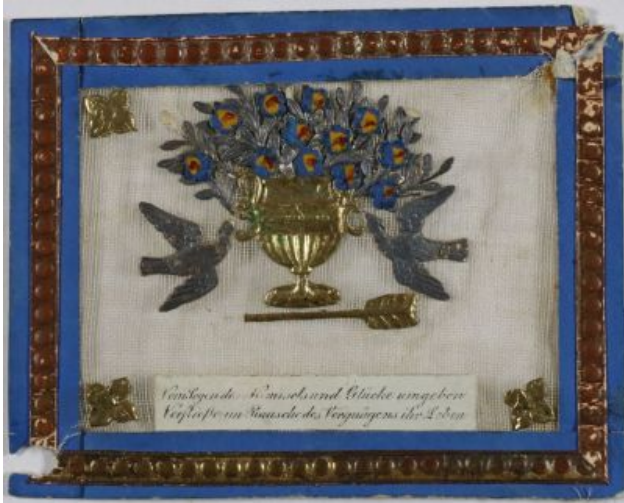 Vom Segen des Himmels und Glücke umgeben
Verfließe im Rausche des Vergnügens ihr Leben